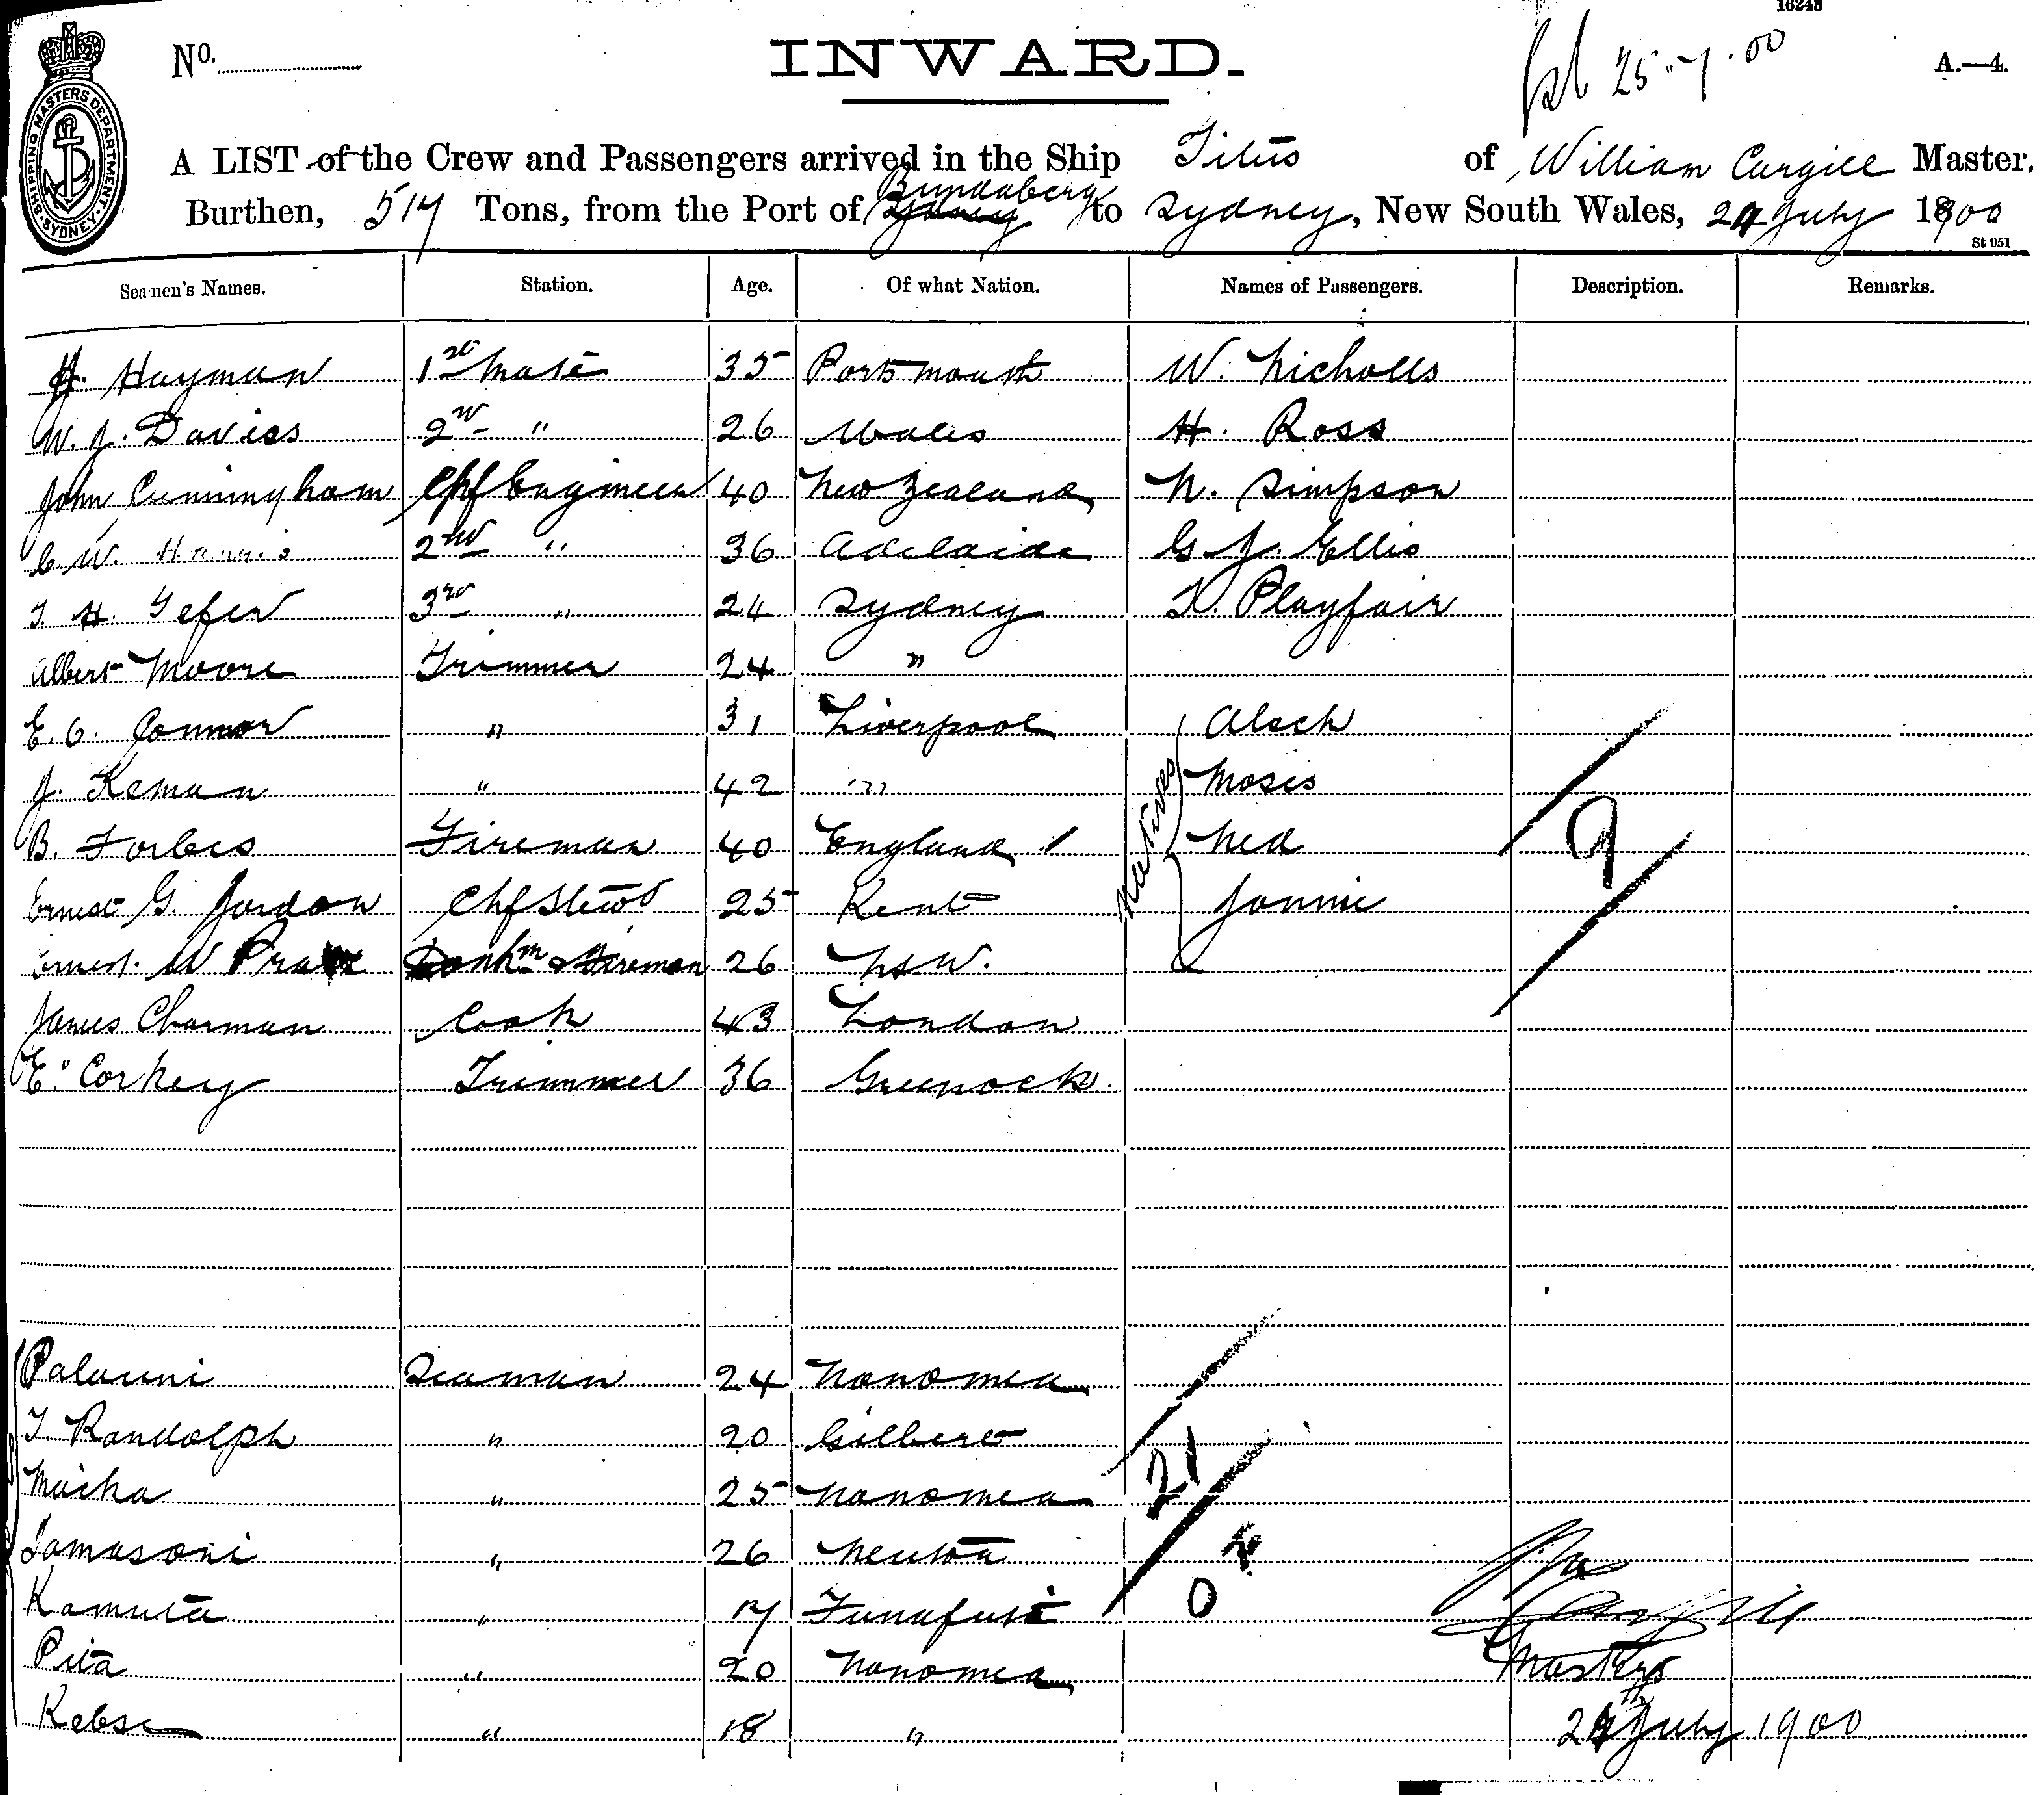 16248
No.
INWARD.
25-7-00
A.—4.
SHIPPING MASTERS DEPARTMENT
SYDNEY
A LIST of the Crew and Passengers arrived in the Ship Titus of William Cargill Master.
Bundaberg
Burthen, 517 Tons, from the Port of Sydney to Sydney, New South Wales, 24 July 1900
St 051
Seamen's Names. Station. Age. Of what Nation. Names of Passengers. Description. Remarks.
H. Hayman 1st Mate 35 Portsmouth W. Nicholls
W. J. Davies 2nd " 26 Wales H. Ross
John Cunningham Chf Engineer 40 New Zealand N. Simpson
C. W. Harris 2nd " 36 Adelaide G. J. Ellis
T. H. 3rd " 24 Sydney T. Playfair
Albert Moore Trimmer 24 "
E. C. Connor " 31 Liverpool Aleck
J. Keman " 42 " Moses
Natives
B. Forbes Fireman 40 England Ned
9
Ernest G. Jordon Chf Stewd 25 Kent Jonnie
Ernest W Donkm & Fireman 26 NSW.
James Charman Cook 43 London
E. Corkery Trimmer 36 Greenock.
Palauni Seaman 24 Nanomea
T Randolph " 20 Gilbert
21
Maika " 25 Nanomea
Samasoni " 26
Kamuta " 17 Funafuti
0
Pita " 20 Nanomea
Master
" 18 "
24th July 1900